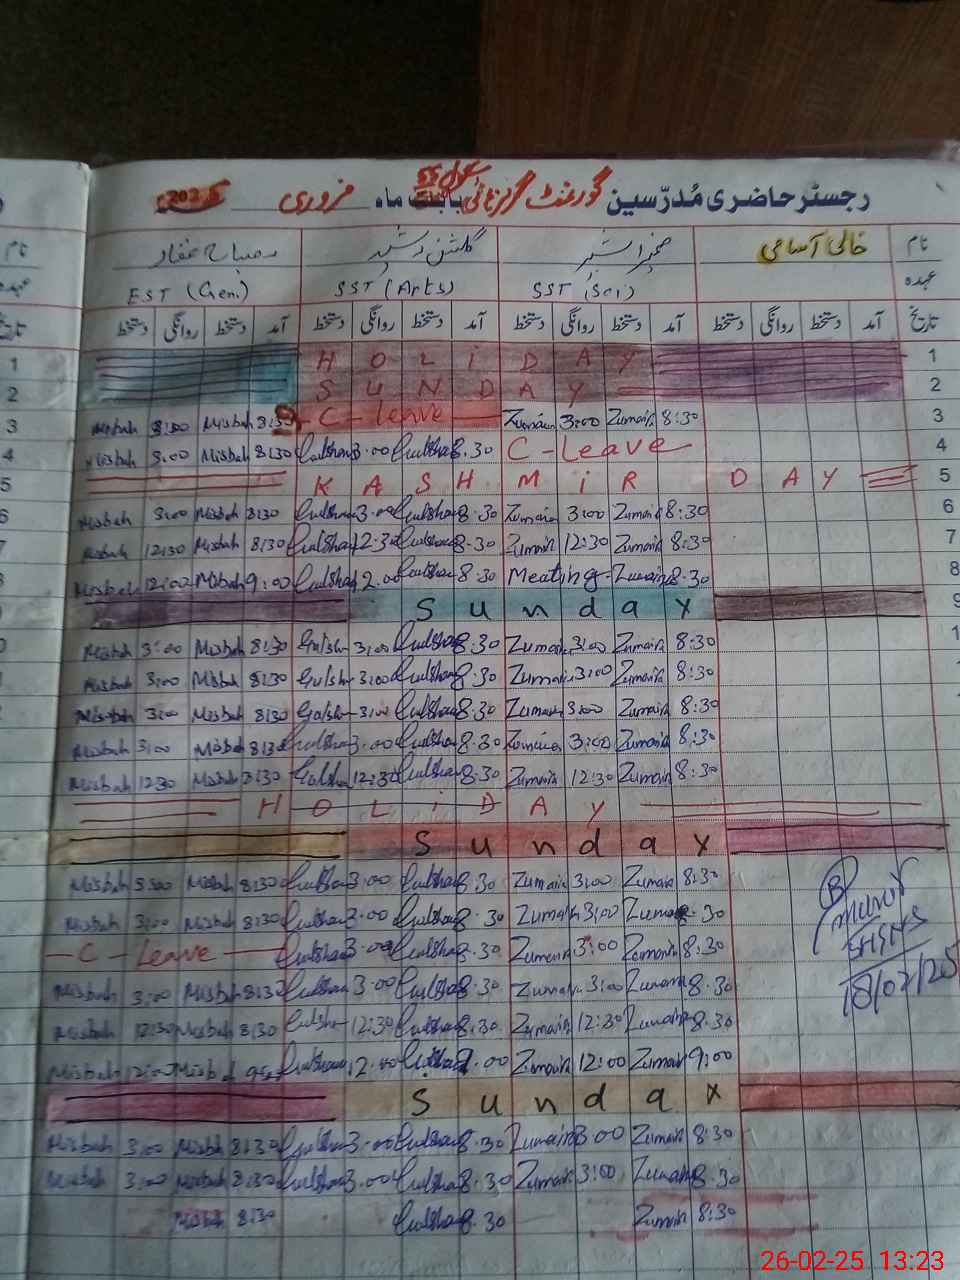 رجسٹر حاضری مُدرّسین گورنمنٹ گرلز ہائی سکول بابت ماہ فروری 2025
نام خالی آسامی گلشن رشید مصباح غفار نام
عہدہ SST (Sci) SST (Arts) EST (Gen) عہدہ
تاریخ آمد دستخط روانگی دستخط آمد دستخط روانگی دستخط آمد دستخط روانگی دستخط آمد دستخط روانگی دستخط
1 HOLiDAY 1
2 SUNDAY 2
3 Misbah 3:00 Misbah 8:30 C-leave Zumaira 3:00 Zumaira 8:30 3
4 Misbah 3:00 Misbah 8:30 Gulshan 3.00 Gulshan 8.30 C-Leave 4
5 KASHMiR DAY 5
6 Misbah 3:00 Misbah 8:30 Gulshan 3.00 Gulshan 8.30 Zumaira 3:00 Zumaira 8:30 6
7 Misbah 12:30 Misbah 8:30 Gulshan 12.30 Gulshan 8.30 Zumaira 12:30 Zumaira 8:30 7
8 Misbah 12:00 Misbah 9:00 Gulshan 12.00 Gulshan 8:30 Meating Zumaira 8.30 8
Sunday 9
Misbah 3:00 Misbah 8:30 Gulshan 3:00 Gulshan 8.30 Zumaira 3:00 Zumaira 8:30
Misbah 3:00 Misbah 8:30 Gulshan 3:00 Gulshan 8.30 Zumaira 3:00 Zumaira 8:30
Misbah 3:00 Misbah 8:30 Gulshan 3:00 Gulshan 8.30 Zumaira 3:00 Zumaira 8:30
Misbah 3:00 Misbah 8:30 Gulshan 3.00 Gulshan 8.30 Zumaira 3:00 Zumaira 8:30
Misbah 12:30 Misbah 8:30 Gulshan 12:30 Gulshan 8.30 Zumaira 12:30 Zumaira 8:30
HOLiDAY
Sunday
Misbah 3:00 Misbah 8:30 Gulshan 3:00 Gulshan 8.30 Zumaira 3:00 Zumaira 8:30
Misbah 3:00 Misbah 8:30 Gulshan 3.00 Gulshan 8.30 Zumaira 3:00 Zumaira 8.30
C-Leave Gulshan 3.00 Gulshan 8.30 Zumaira 3:00 Zumaira 8:30
Misbah 3:00 Misbah 8:30 Gulshan 3.00 Gulshan 8.30 Zumaira 3:00 Zumaira 8.30
Misbah 12:30 Misbah 8:30 Gulshan 12:30 Gulshan 8.30 Zumaira 12:30 Zumaira 8.30
Misbah 12:00 Misbah Gulshan 12.00 Gulshan 9.00 Zumaira 12:00 Zumaira 9:00
18/02/25
Sunday
Misbah 3:00 Misbah 8:30 Gulshan 3.00 Gulshan 8.30 Zumaira 3:00 Zumaira 8:30
Misbah 3:00 Misbah 8:30 Gulshan 3.00 Gulshan 8.30 Zumaira 3:00 Zumaira 8.30
Misbah 8:30 Gulshan 8.30 Zumaira 8:30
26-02-25 13:23